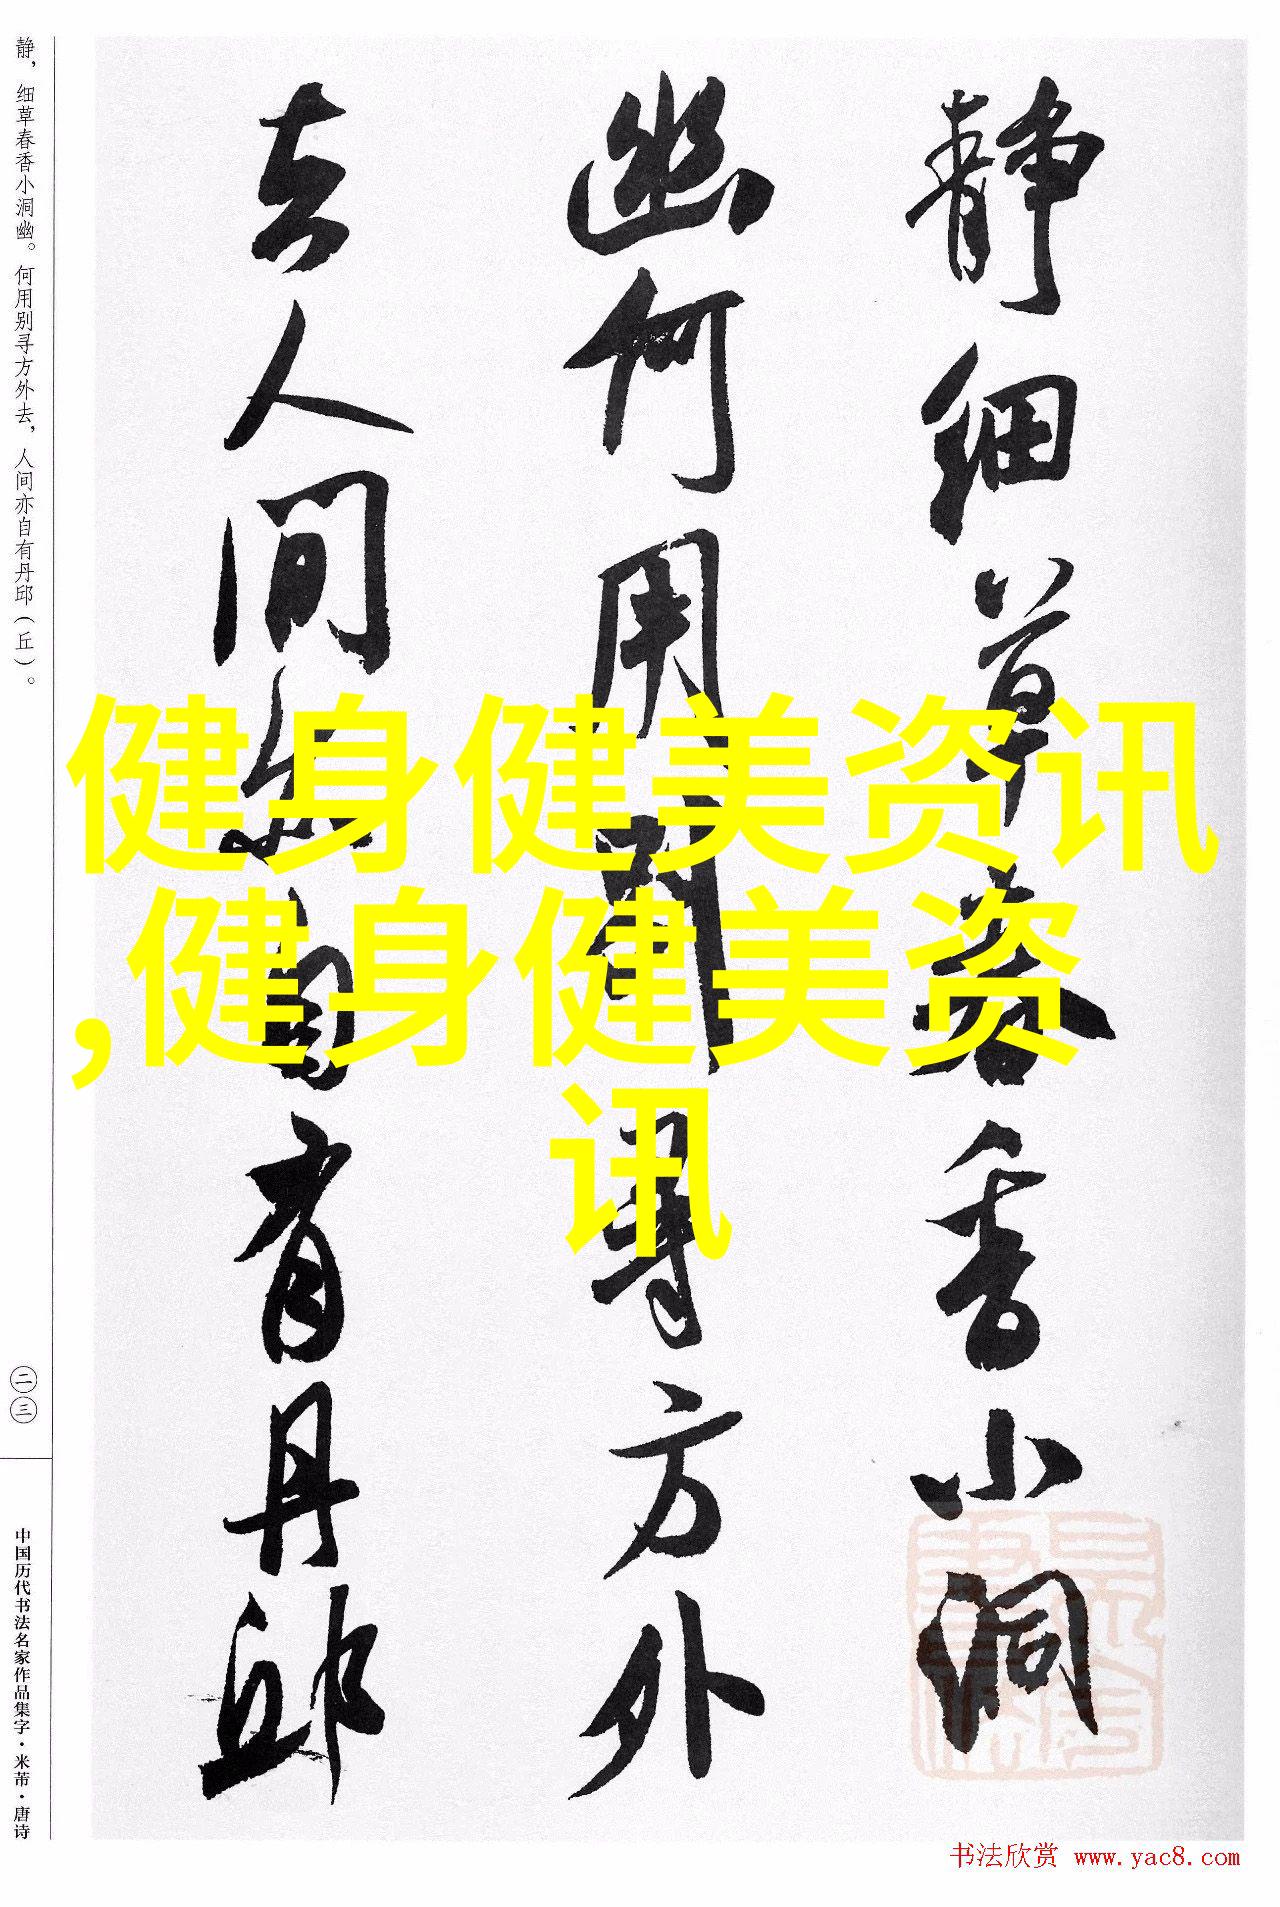 静细草春香小洞
幽何用别寻方外
去人间亦自有丹邱
健身健美资讯
,健身健美资
讯
静，细草春香小洞幽。何用别寻方外去，人间亦自有丹邱（丘）。
二三
中国历代书法名家作品集字·米芾·唐诗
书法欣赏 www.yac8.com